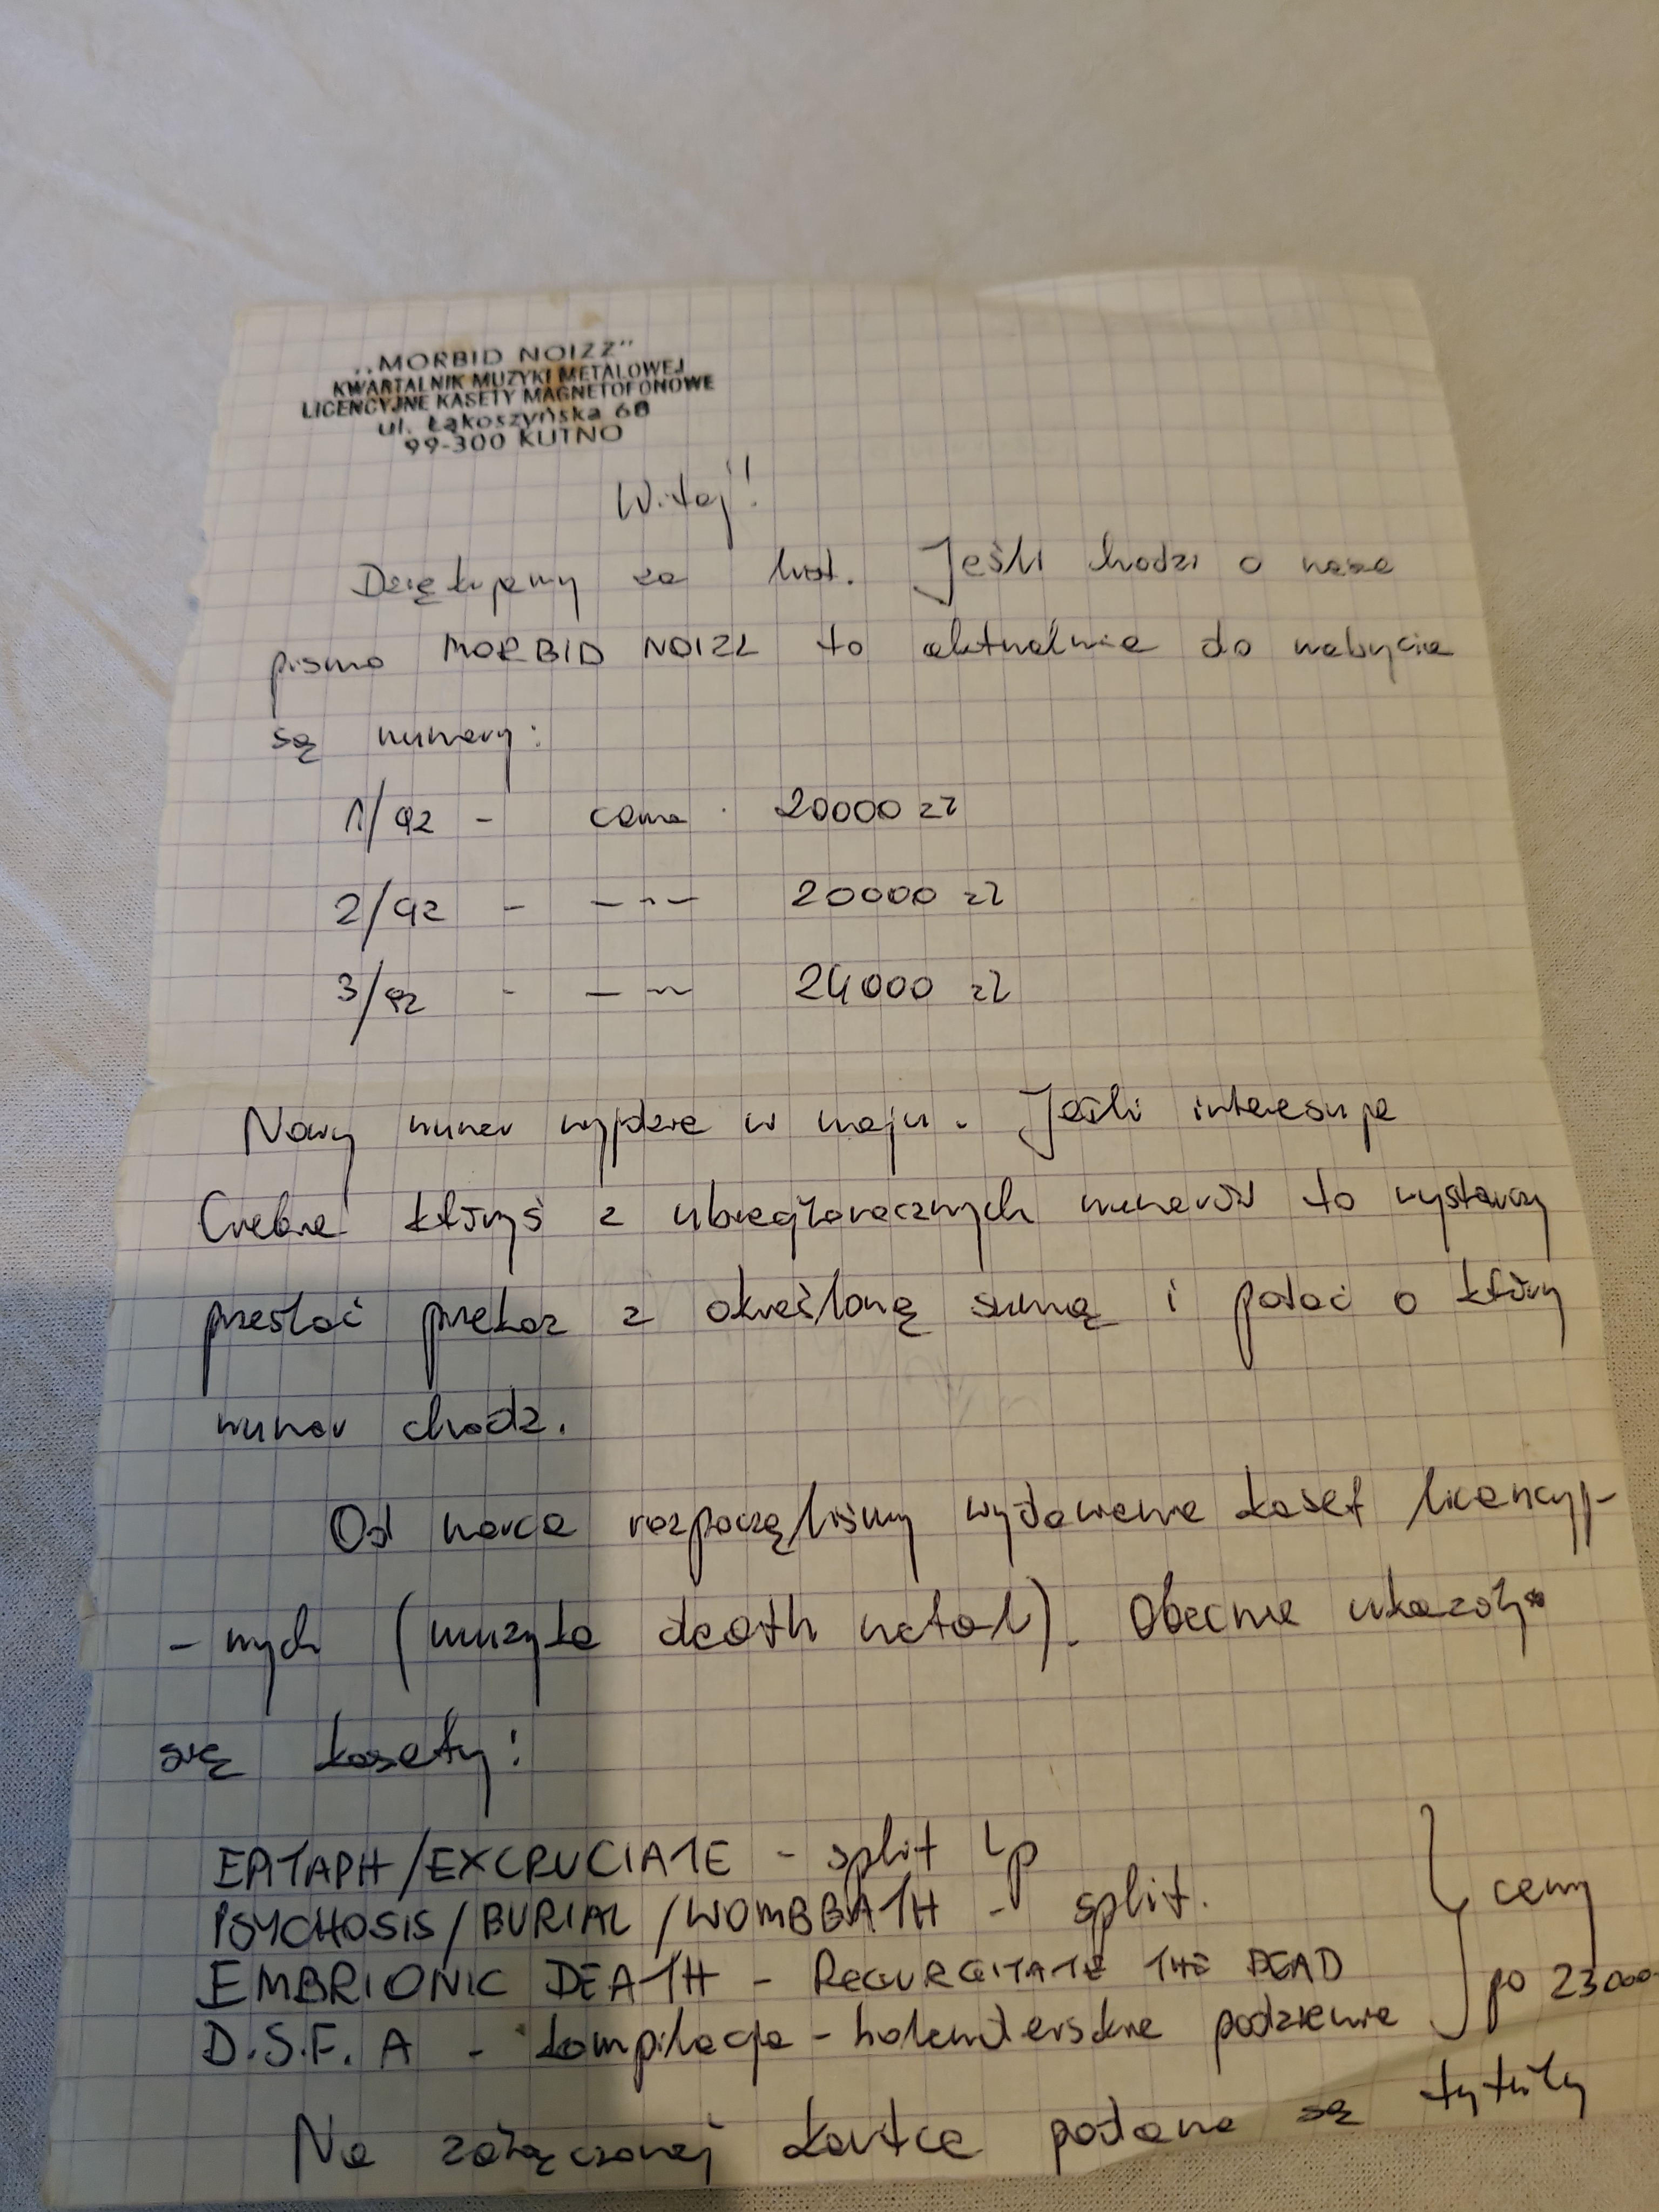 „MORBID NOIZZ"
KWARTALNIK MUZYKI METALOWEJ
LICENCYJNE KASETY MAGNETOFONOWE
ul. Łąkoszyńska 68
99-300 KUTNO
Witaj!
Dziękujemy za list. Jeśli chodzi o nasze
pismo MORBID NOIZZ to aktualnie do nabycia
są numery:
1/92 - cena 20000 zł
2/92 - -"- 20000 zł
3/92 - -"- 24000 zł
Nowy numer wyjdzie w maju. Jeśli interesuje
Ciebie któryś z ubiegłorocznych numerów to wystarczy
przesłać przekaz z określoną sumą i podać o który
numer chodzi.
Od marca rozpoczęliśmy wydawanie kaset licencyj-
- nych (muzyka death metal). Obecnie ukazały
się kasety:
EPITAPH/EXCRUCIATE - split Lp
PSYCHOSIS/BURIAL/WOMBBATH - split.
EMBRIONIC DEATH - REGURGITATE THE DEAD
D.S.F.A - kompilacja - holenderskie podziemie
ceny
po 23000
Na załączonej kartce podane są tytuły